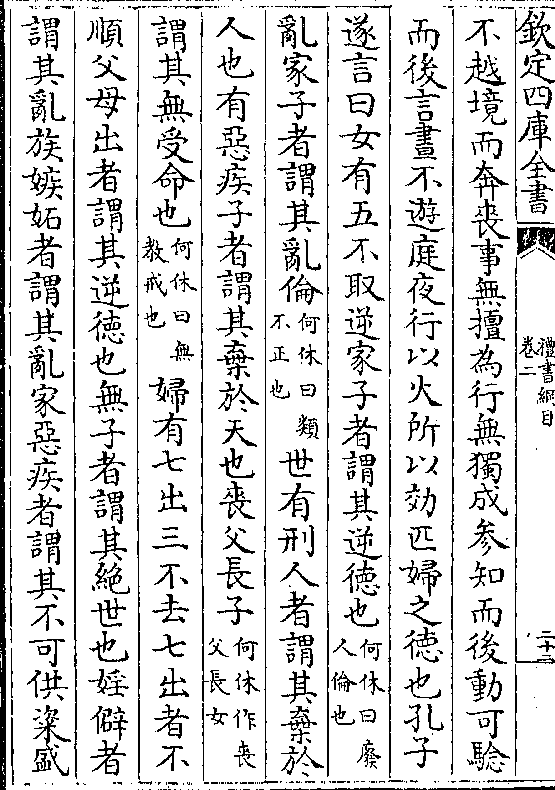 欽定四庫全書
禮書綱目
卷二
二十三
不越境而奔喪事無擅為行無獨成參知而後動可驗
而後言晝不遊庭夜行以火所以効匹婦之徳也孔子
遂言曰女有五不取逆家子者謂其逆徳也何休曰廢人倫也
亂家子者謂其亂倫何休曰類不正也世有刑人者謂其棄於
人也有惡疾子者謂其棄於天也喪父長子何休作喪父長女
謂其無受命也何休曰無教戒也婦有七出三不去七出者不
順父母出者謂其逆徳也無子者謂其絶世也婬僻者
謂其亂族嫉妬者謂其亂家惡疾者謂其不可供粢盛